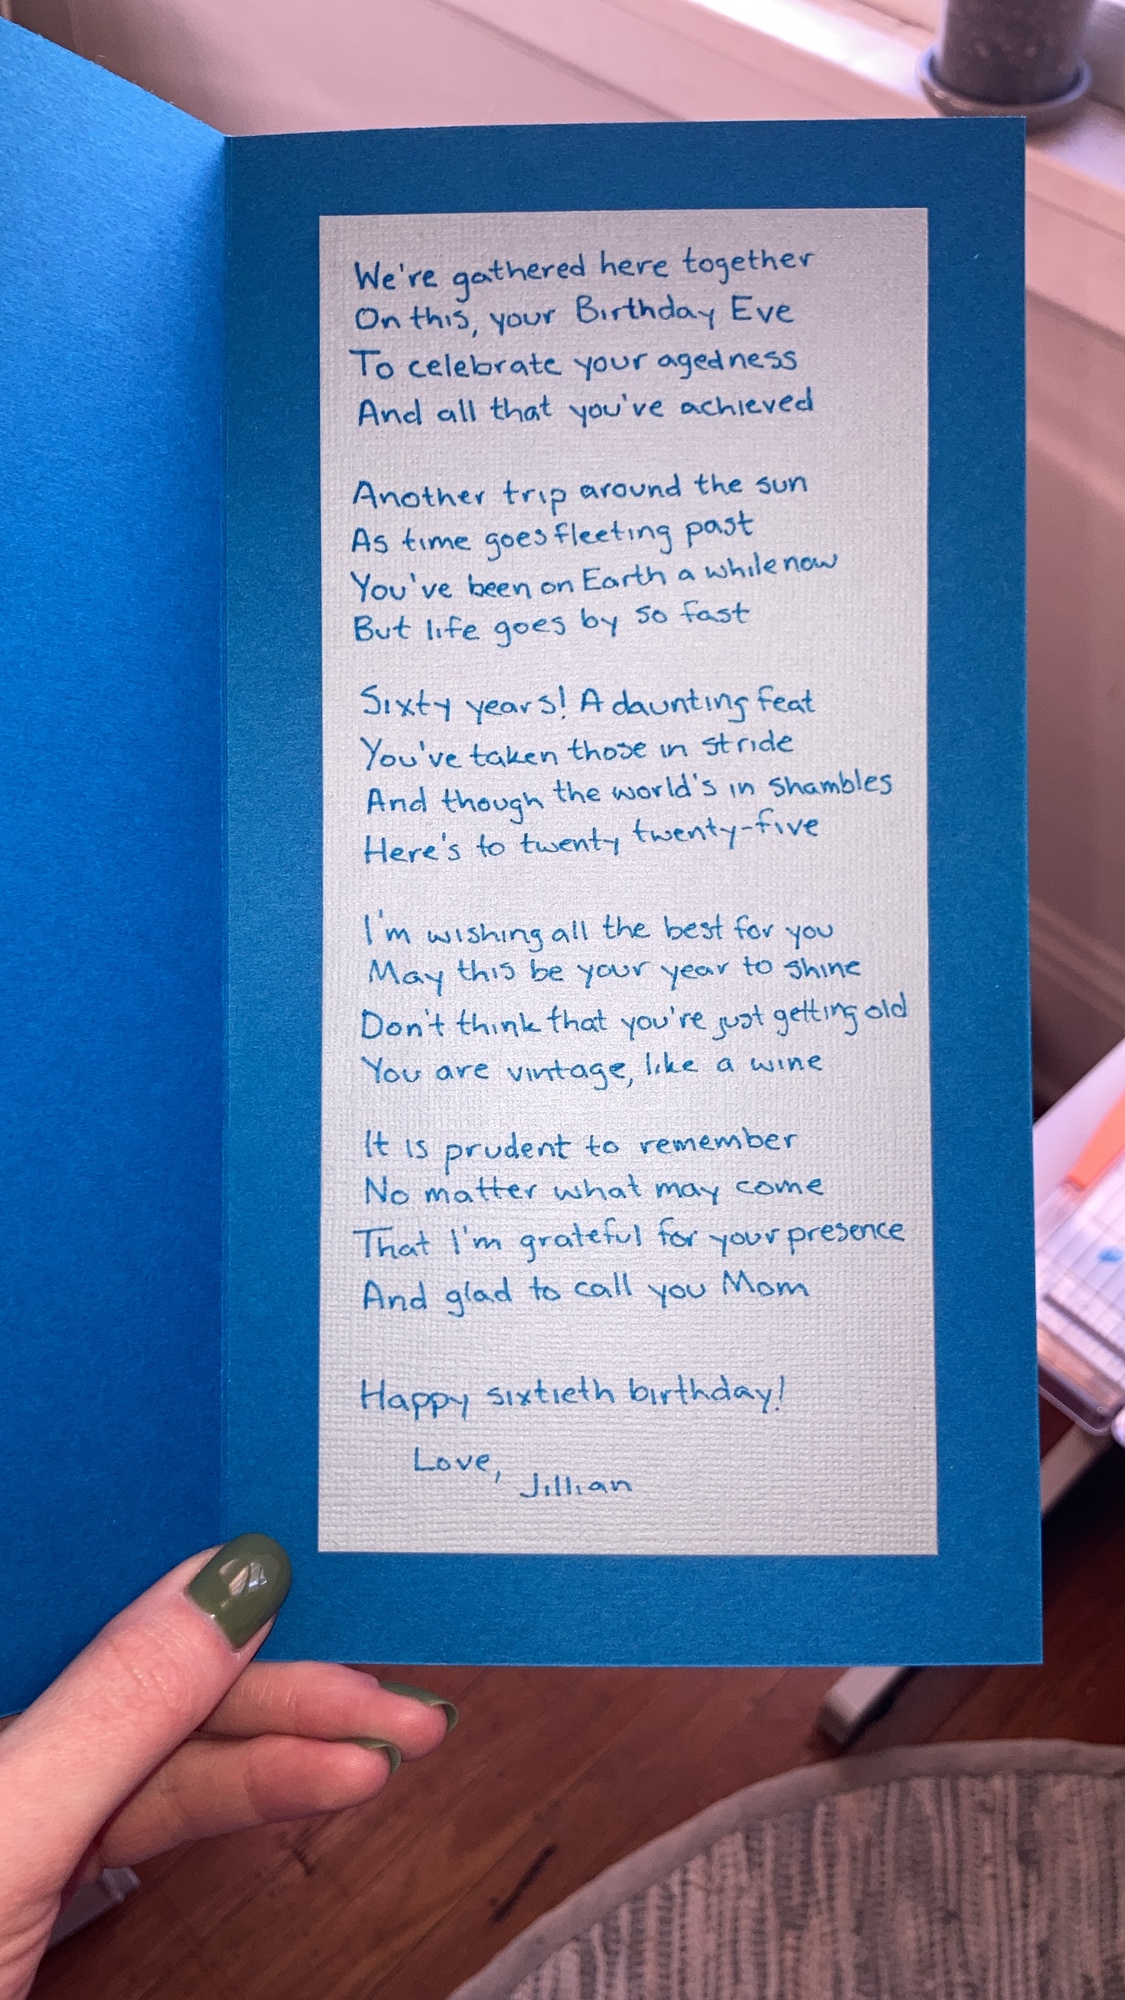 We're gathered here together
On this, your Birthday Eve
To celebrate your agedness
And all that you've achieved
Another trip around the sun
As time goes fleeting past
You've been on Earth a while now
But life goes by so fast
Sixty years! A daunting feat
You've taken those in stride
And though the world's in shambles
Here's to twenty twenty-five
I'm wishing all the best for you
May this be your year to shine
Don't think that you're just getting old
You are vintage, like a wine
It is prudent to remember
No matter what may come
That I'm grateful for your presence
And glad to call you Mom
Happy sixtieth birthday!
Love,
Jillian